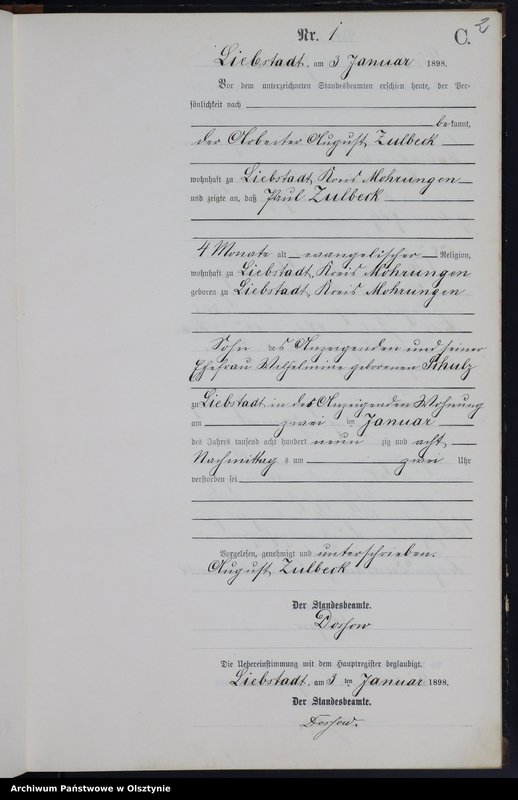 Nr. 1
C. 2
Liebstadt, am 3 Januar 1898.
Vor dem unterzeichneten Standesbeamten erschien heute, der Per-
sönlichkeit nach
be kannt,
der Arbeiter August Zulbeck
wohnhaft zu Liebstadt, Kreis Mohrungen
und zeigte an, daß Paul Zulbeck
4 Monate alt evangelischer Religion,
wohnhaft zu Liebstadt, Kreis Mohrungen
geboren zu Liebstadt, Kreis Mohrungen
Sohn es Anzeigenden und seiner
Ehefrau Wilhelmine geborenen Schulz
zu Liebstadt in des Anzeigenden Wohnung
am zwei ten Januar
des Jahres tausend acht hundert neun zig und acht
Nachmittag s um zwei Uhr
verstorben sei
Vorgelesen, genehmigt und unterschrieben.
August Zulbeck
Der Standesbeamte.
Die Uebereinstimmung mit dem Hauptregister beglaubigt.
Liebstadt, am 3 ten Januar 1898.
Der Standesbeamte.
Archiwum Państwowe w Olsztynie